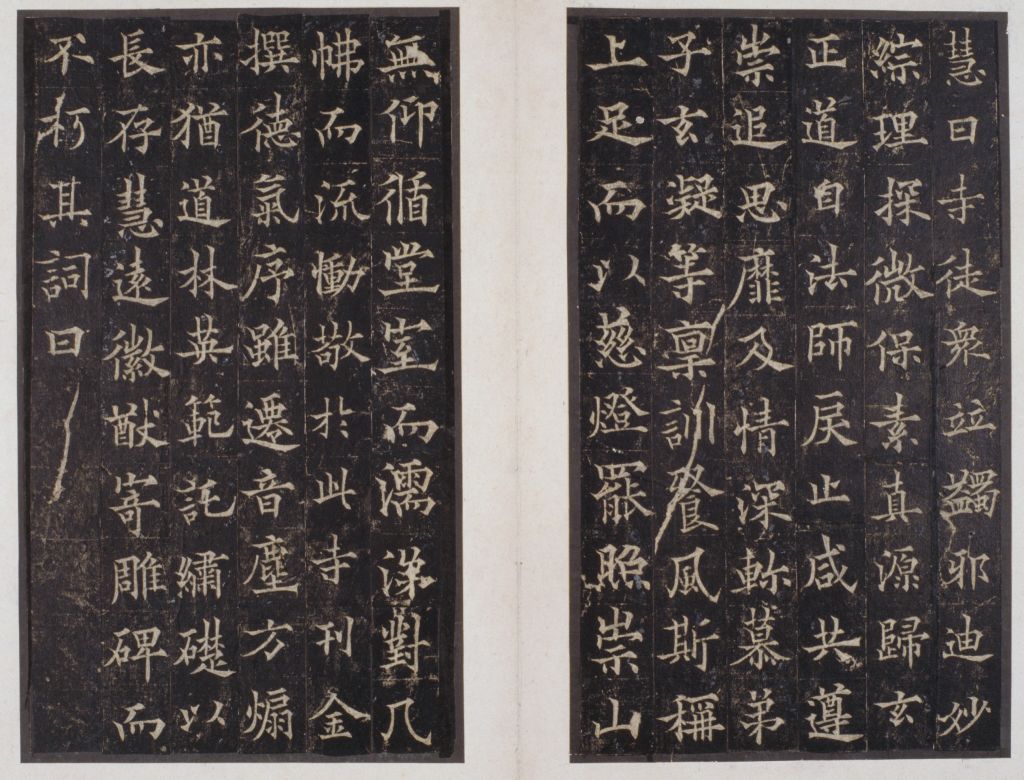 慧日寺徒衆並蠲邪迪妙
綜理探微保素真源歸玄
正道自法師戾止咸共遵
崇追思靡及情深軫慕弟
子玄凝等稟訓飡風斯稱
上足而以慈燈罷照崇山
無仰循堂室而濡涕對几
怫而流慟敬於此寺刊金
撰德氣序雖遷音塵方煽
亦猶道林英範託繡礎以
長存慧遠徽猷寄雕碑而
不朽其詞曰